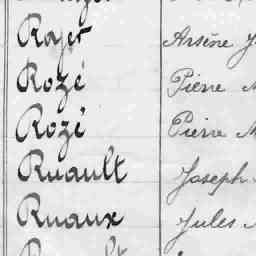 Rojer Arsène
Rozé Pierre
Rozé Pierre
Ruault Joseph
Ruaux Jules